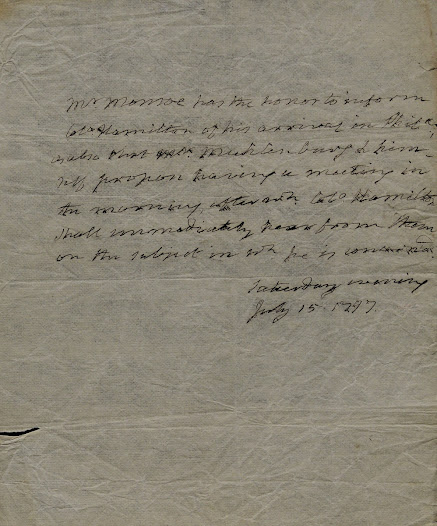 Mr Monroe has the honor to inform
Colo Hamilton of his arrival in Phila.
as also that Mr. Muhlenburg & him-
self propose having a meeting in
the morning, after wh Colo Hamilton
shall immediately hear from them
on the subject in wh he is concern'd.
Saturday evening
July 15. 1797.